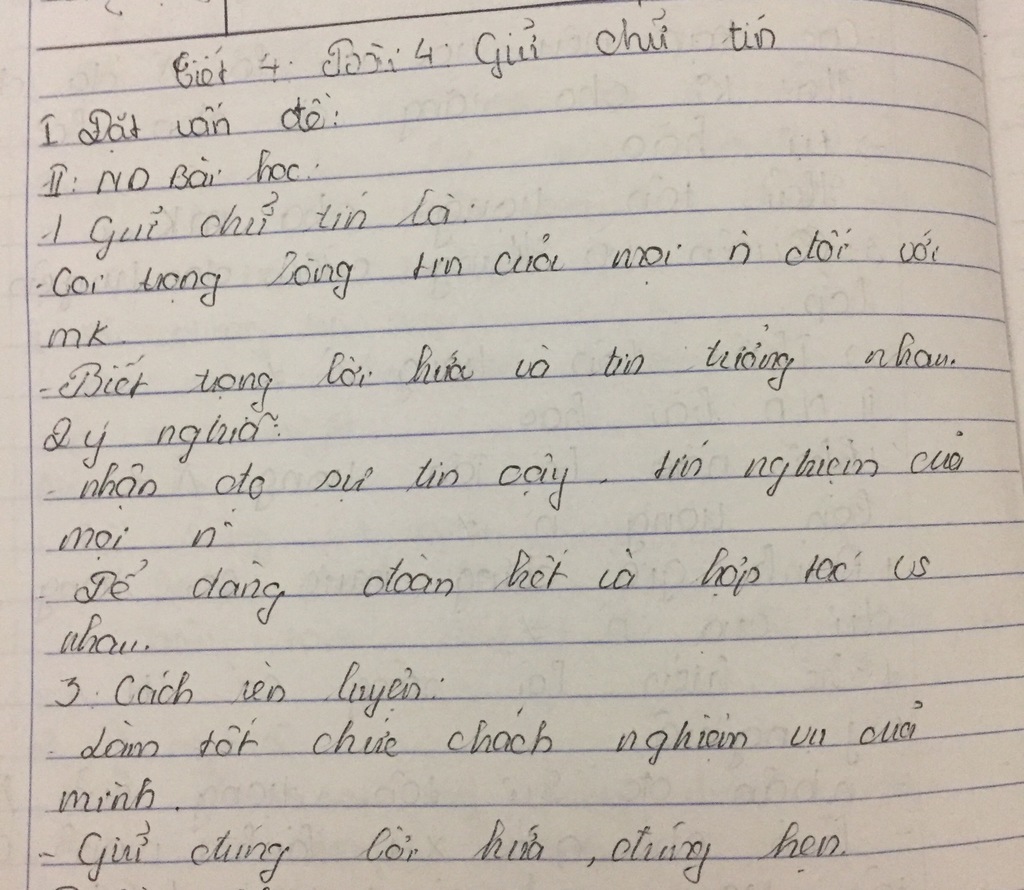 Tiết 4: Bài 4: Giử chử tín
I Đặt vấn đề:
II: ND Bài học:
1 Giử chử tín là:
- Coi trọng lòng tin của mọi n' đối với
mk.
- Biết trọng lời hứa và tin tưởng nhau.
2 ý nghĩa:
- nhận đc sự tin cậy, tín nghiệm của
mọi n'
- Dể dàng đoàn kết và hợp tác vs
nhau.
3. Cách rèn luyện:
- Làm tốt chức chách nghiệm vụ của
mình.
- Giử đúng lời hứa, đúng hẹn.